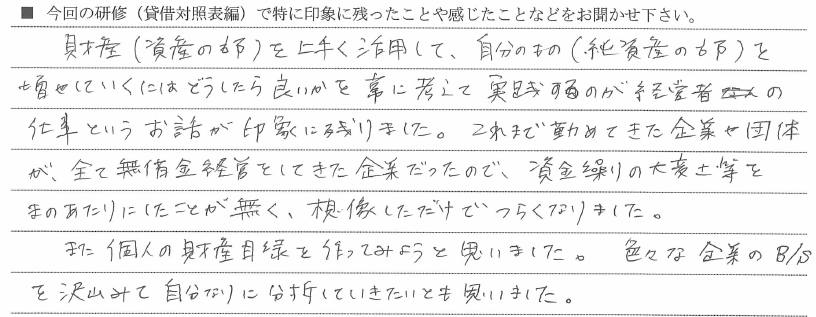 ■ 今回の研修（貸借対照表編）で特に印象に残ったことや感じたことなどをお聞かせ下さい。
財産（資産の部）を上手く活用して、自分のもの（純資産の部）を
増やしていくにはどうしたら良いかを常に考えて実践するのが経営者の
仕事というお話が印象に残りました。これまで勤めてきた企業や団体
が、全て無借金経営をしてきた企業だったので、資金繰りの大変さ等を
まのあたりにしたことが無く、想像しただけでつらくなりました。
また個人の財産目録を作ってみようと思いました。色々な企業のB/S
を沢山みて自分なりに分析していきたいとも思いました。